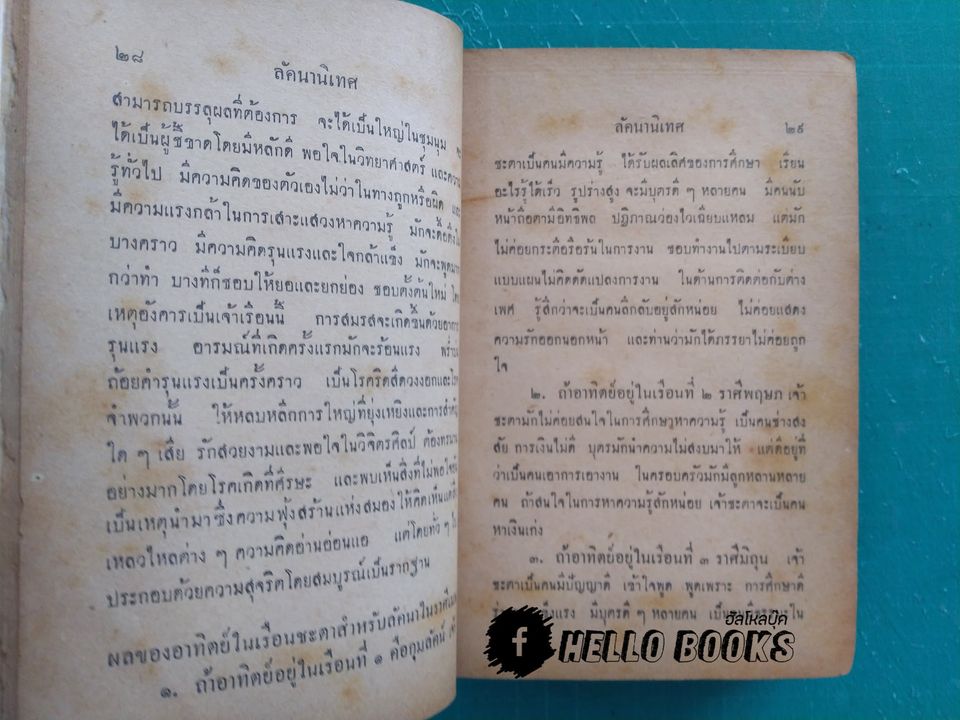 ๒๘
ลัคนานิเทศ
สามารถบรรลุผลที่ต้องการ จะได้เป็นใหญ่ในชุมนุม
ได้เป็นผู้ชี้ขาดโดยมีหลักดี พอใจในวิทยาศาสตร์ และความ
รู้ทั่วไป มีความคิดของตัวเองไม่ว่าในทางถูกหรือผิด และ
มีความแรงกล้าในการเสาะแสวงหาความรู้ มักจะดื้อดึง
บางคราว มีความคิดรุนแรงและใจกล้าแข็ง มักจะพูดมาก
กว่าทำ บางทีก็ชอบให้ยอและยกย่อง ชอบตั้งต้นใหม่ โดย
เหตุอังคารเป็นเจ้าเรือนนี้ การสมรสจะเกิดขึ้นด้วยอาการ
รุนแรง อารมณ์ที่เกิดครั้งแรกมักจะร้อนแรง
ถ้อยคำรุนแรงเป็นครั้งคราว เป็นโรคริดสีดวงงอกและ
จำพวกนั้น ให้หลบหลีกการใหญ่ที่ยุ่งเหยิงและการสำคัญ
ใด ๆ เสีย รักสวยงามและพอใจในวิจิตรศิลป ต้องทรมาน
อย่างมากโดยโรคเกิดที่ศีรษะ และพบเห็นสิ่งที่ไม่พอใจอัน
เป็นเหตุนำมาซึ่งความฟุ้งสร้านแห่งสมองให้คิดเห็น
เหลวไหลต่าง ๆ ความคิดอ่านอ่อนแอ แต่โดยทั่ว ๆ ไป
ประกอบด้วยความสุจริตโดยสมบูรณ์เป็นรากฐาน
ผลของอาทิตย์ในเรือนชะตาสำหรับลัคนาในราศีเมษ
๑. ถ้าอาทิตย์อยู่ในเรือนที่ ๑ คือกุมลัคน์ เจ้า
ลัคนานิเทศ
๒๙
ชะตาเป็นคนมีความรู้ ได้รับผลเลิศของการศึกษา เรียน
อะไรรู้ได้เร็ว รูปร่างสูง จะมีบุตรดี ๆ หลายคน มีคนนับ
หน้าถือตามีอิทธิพล ปฏิภาณว่องไวเฉียบแหลม แต่มัก
ไม่ค่อยกระตือรือร้นในการงาน ชอบทำงานไปตามระเบียบ
แบบแผนไม่คิดดัดแปลงการงาน ในด้านการติดต่อกับต่าง
เพศ รู้สึกว่าจะเป็นคนลึกลับอยู่สักหน่อย ไม่ค่อยแสดง
ความรักออกนอกหน้า และท่านว่ามักได้ภรรยาไม่ค่อยถูก
ใจ
๒. ถ้าอาทิตย์อยู่ในเรือนที่ ๒ ราศีพฤษภ เจ้า
ชะตามักไม่ค่อยสนใจในการศึกษาหาความรู้ เป็นคนช่างสง
สัย การเงินไม่ดี บุตรมักนำความไม่สงบมาให้ แต่ดีอยู่ที่
ว่าเป็นคนเอาการเอางาน ในครอบครัวมักมีลูกหลานหลาย
คน ถ้าสนใจในการหาความรู้สักหน่อย เจ้าชะตาจะเป็นคน
หาเงินเก่ง
๓. ถ้าอาทิตย์อยู่ในเรือนที่ ๓ ราศีมิถุน เจ้า
ชะตาเป็นคนมีปัญญาดี เข้าใจพูด พูดเพราะ การศึกษาดี
แข็งแรง มีบุตรดี ๆ หลายคน
ฮัลโหลบุ๊ค
f HELLO BOOKS